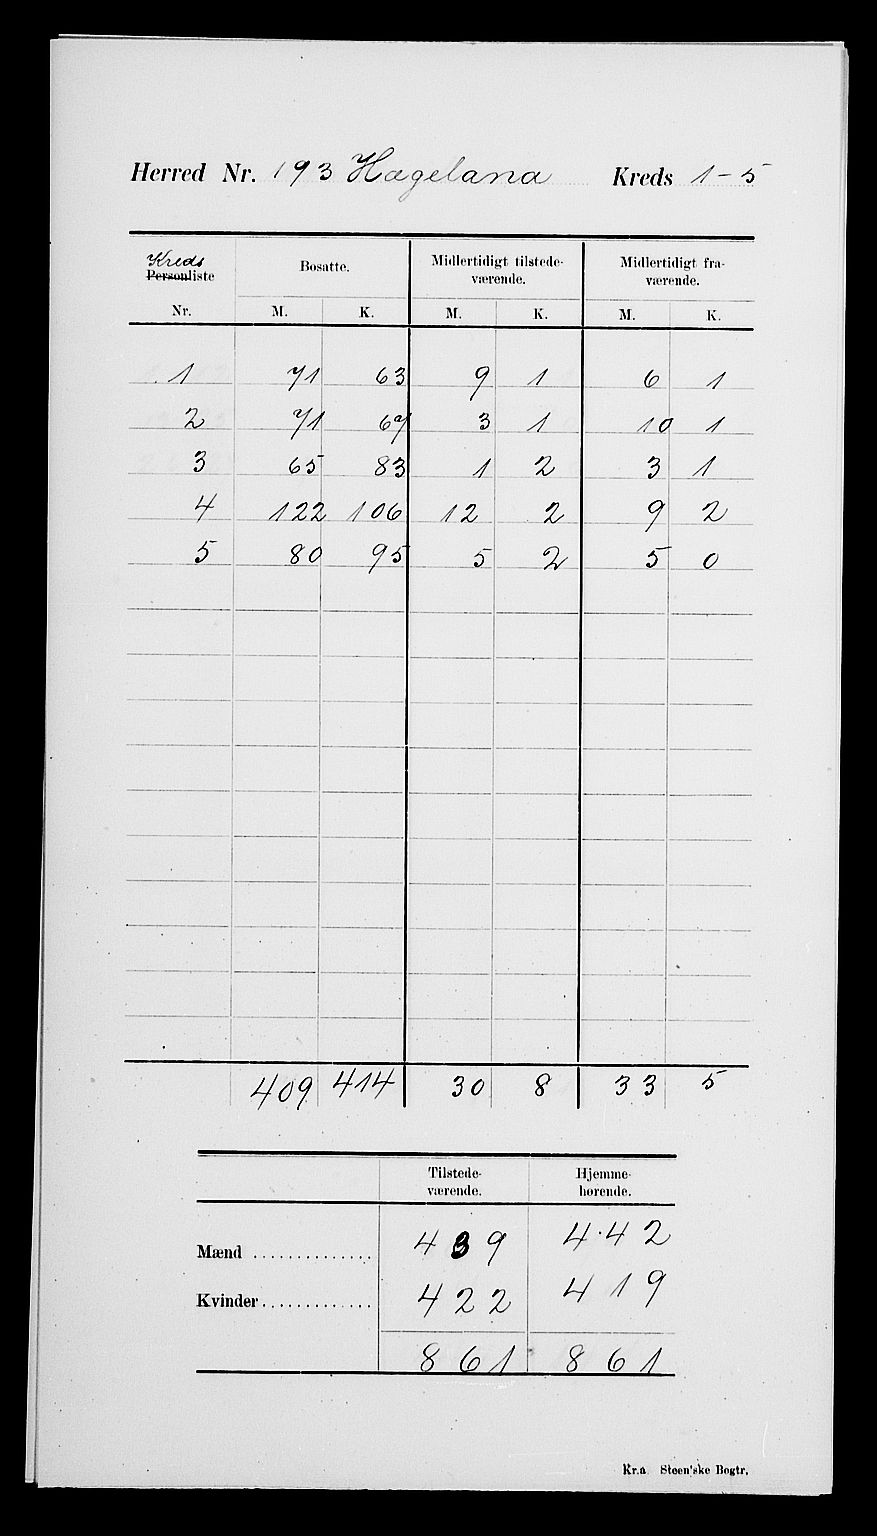 Herred Nr. 193 Hægeland Kreds 1-5
Kreds
Personliste Bosatte. Midlertidigt tilstede- Midlertidigt fra-
værende. værende.
Nr. M. K. M. K. M. K.
1 71 63 9 1 6 1
2 71 67 3 1 10 1
3 65 83 1 2 3 1
4 122 106 12 2 9 2
5 80 95 5 2 5 0
409 414 30 8 33 5
Tilstede- Hjemme-
værende. hørende.
Mænd .............. 439 442
Kvinder ............. 422 419
861 861
Kr.a Steen'ske Bogtr.